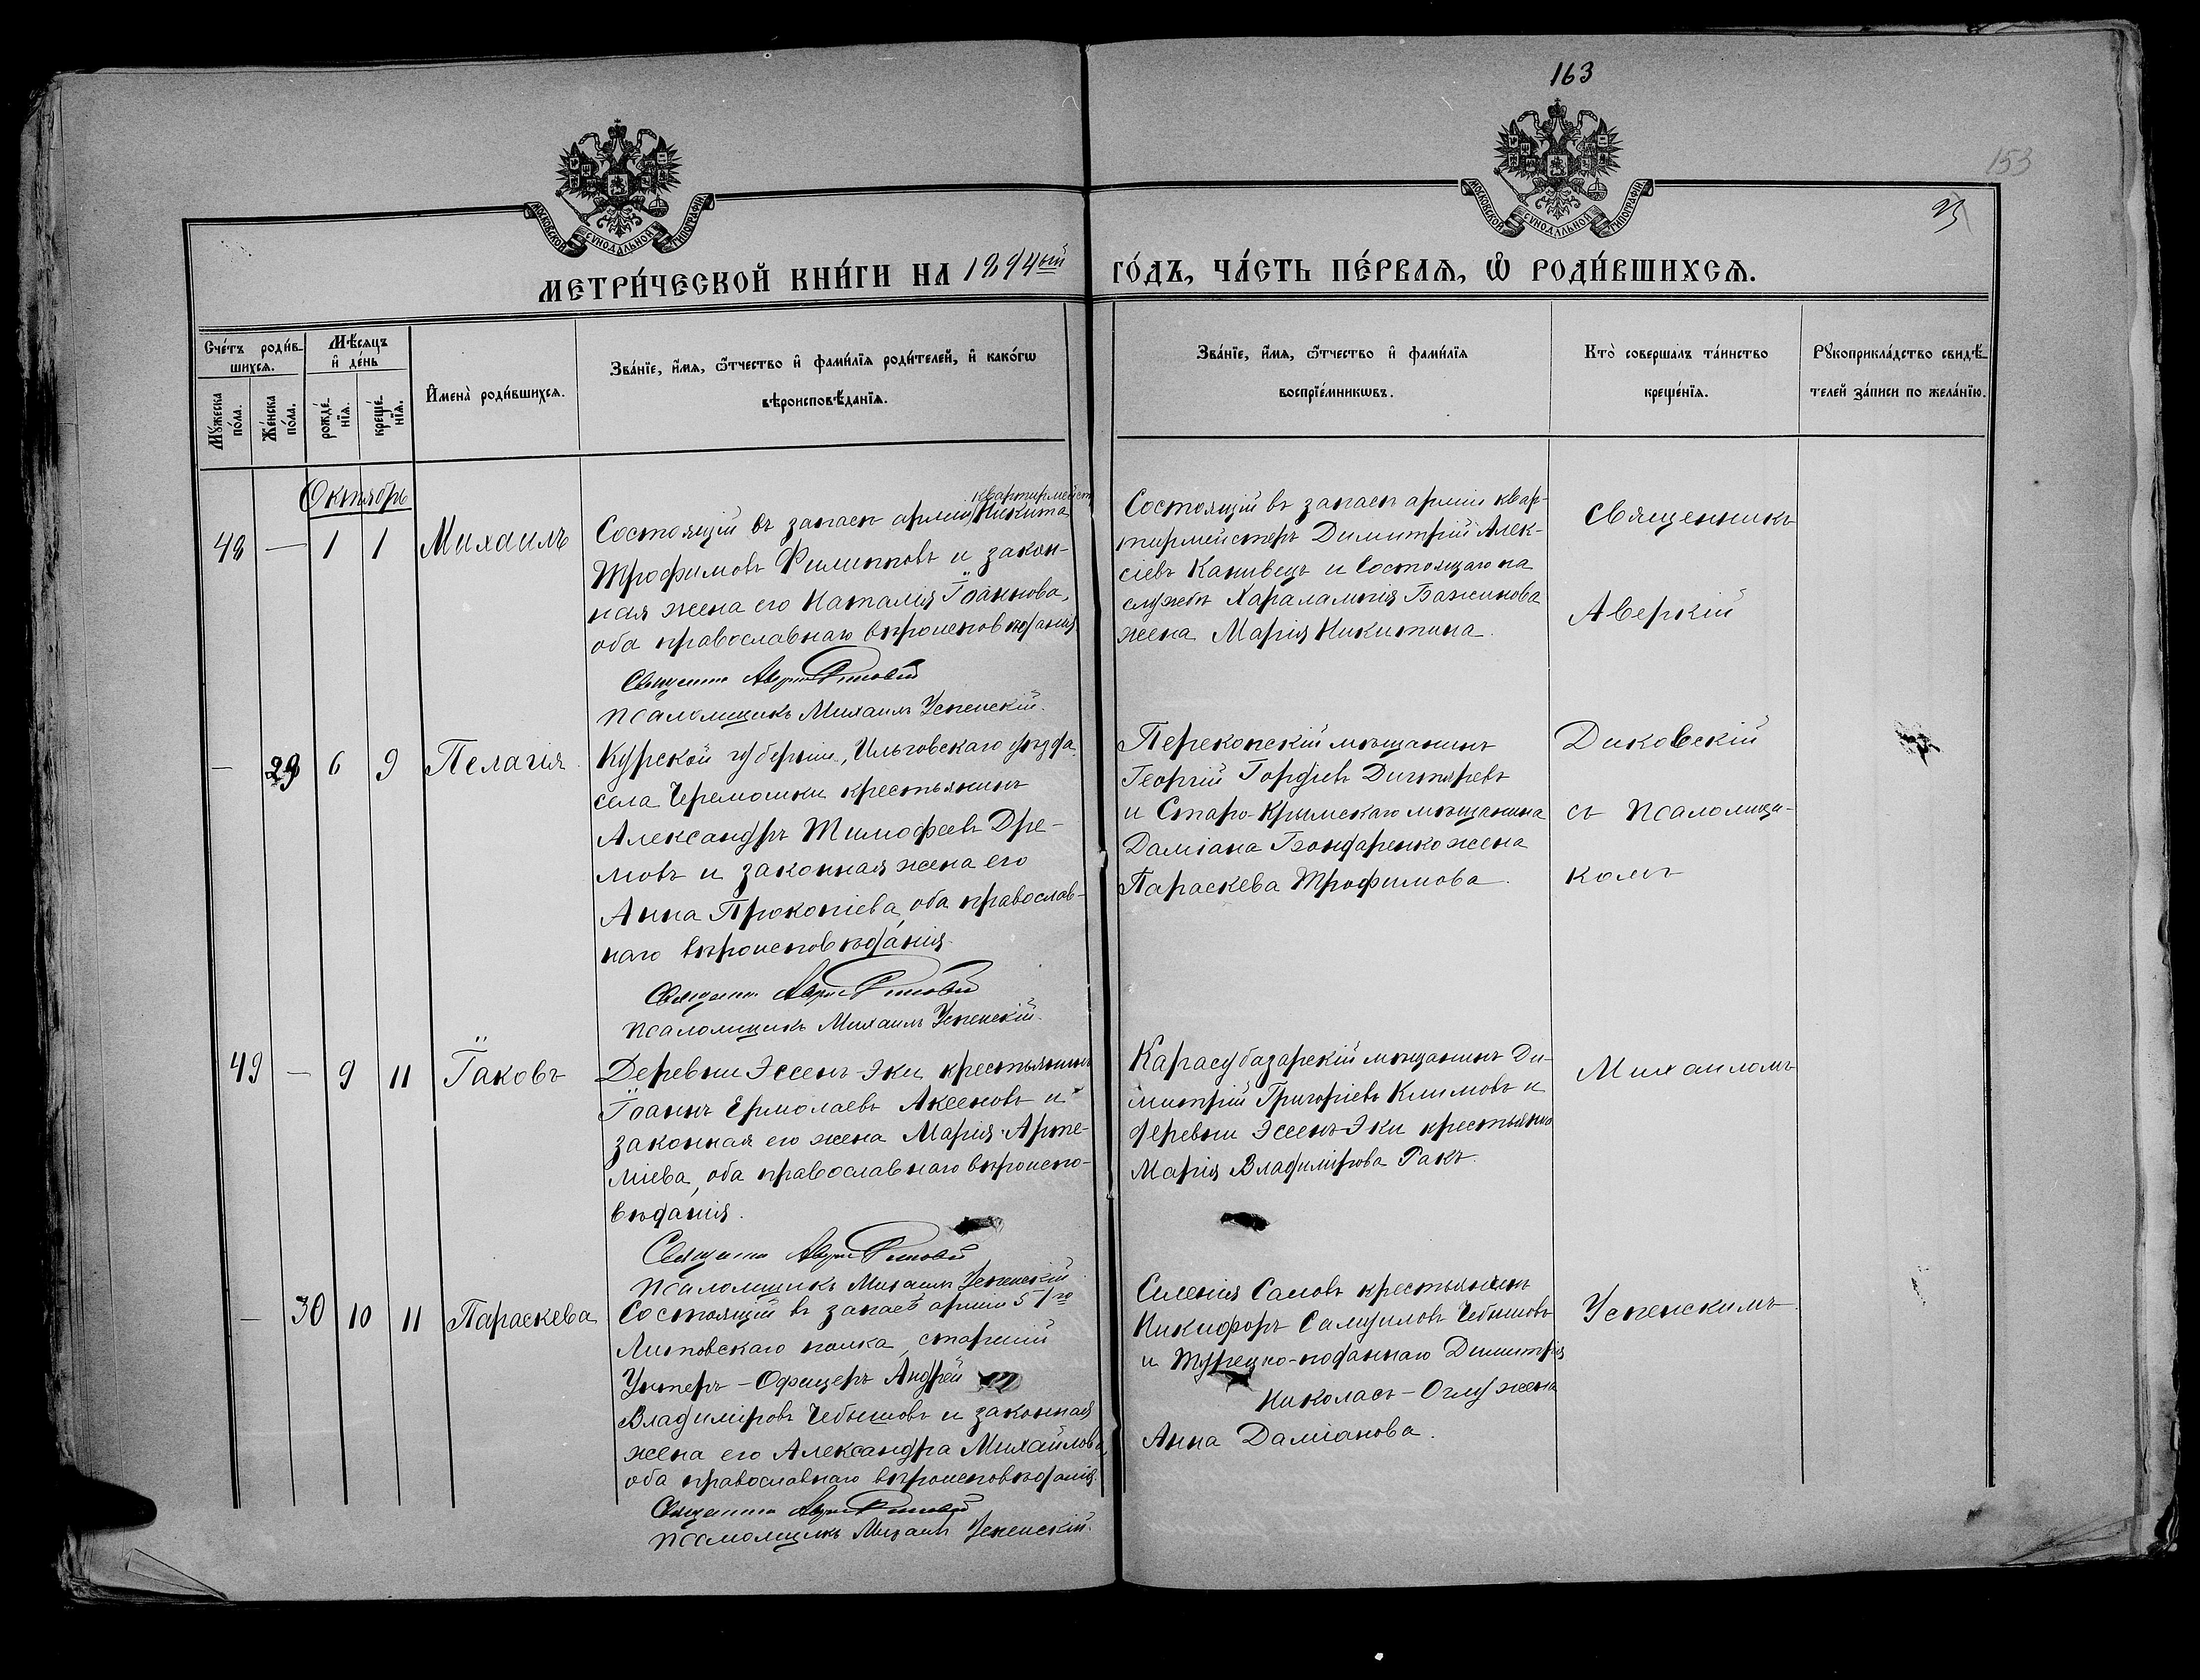 163
153
МОСКОВСКОЙ СѴНОДАЛЬНОЙ ТИПОГРАФІИ
МОСКОВСКОЙ СѴНОДАЛЬНОЙ ТИПОГРАФІИ
МЕТРИ́ЧЕСКОЙ КНИ́ГИ НА 1894ый ГО́ДЪ, ЧА́СТЬ ПЕ́РВАѦ, Ѡ҆ РОДИ́ВШИХСѦ.
Сче́тъ роди́в-
шихсѧ.
Мꙋ́жеска по́ла.
Же́нска по́ла.
Мѣ́сѧцъ
и҆ де́нь
рожде́-
нїѧ.
креще́-
нїѧ.
И҆мена̀ роди́вшихсѧ.
Зва́нїе, и҆́мѧ, ѻ҆́тчество и҆ фами́лїѧ роди́телей, и҆ како́гѡ
вѣроисповѣ́данїѧ.
Зва́нїе, и҆́мѧ, ѻ҆́тчество и҆ фами́лїѧ
воспрїе́мникѡвъ.
Кто̀ соверша́лъ та́инство
креще́нїѧ.
Рꙋкоприкла́дство свидѣ́-
телей за́писи по жела́нїю.
Октябрь
48 — 1 1 Михаилъ
квартирмейст
Состоящій въ запасѣ арміи Никита
Трофимовъ Филипповъ и закон-
ная жена его Наталія Іоаннова,
оба православнаго вѣроисповѣданія
Священникъ
Псаломщикъ Михаилъ Успенскій.
Состоящій въ запасѣ арміи квар-
тирмейстеръ Димитрій Алек-
сіевъ Канивецъ и Состоящаго на
службѣ Харалампія Бажинова
жена Марія Никитина.
Священникъ
Аверкій
— 29 6 9 Пелагія
Курской губерніи, Ильговскаго уѣзда
села Черемошки крестьянинъ
Александръ Тимофеевъ Дре-
мовъ и законная жена его
Анна Прокопіева, оба православ-
наго вѣроисповѣданія.
Священникъ
Псаломщикъ Михаилъ Успенскій.
Перекопскій мѣщанинъ
Георгій Гордіевъ Дигтяревъ
и Старо-Крымскаго мѣщанина
Даміана Бондаренко жена
Параскева Трофимова.
Диковскій
съ Псаломщи-
комъ
49 — 9 11 Іаковъ
Деревни Эссенъ-Эки крестьянинъ
Іоаннъ Ермолаевъ Аксеновъ и
законная его жена Марія Арте-
міева, оба православнаго вѣроиспо-
вѣданія.
Священникъ
Псаломщикъ Михаилъ Успенскій
Карасубазарскій мѣщанинъ Ди-
митрій Григоріевъ Климовъ и
деревни Эссенъ-Эки крестьянка
Марія Владимірова Ракъ.
Михаиломъ
— 30 10 11 Параскева
Состоящій въ запасѣ арміи 51го
Литовскаго полка, старшій
Унтеръ-Офицеръ Андрей
Владиміровъ Чебышовъ и законная
жена его Александра Михайлова
оба православнаго вѣроисповѣданія.
Священникъ
Псаломщикъ Михаилъ Успенскій.
Селенія Саловъ крестьянинъ
Никифоръ Самуиловъ Чебышовъ
и Турецко-поданнаго Димитрія
Николасъ-Оглу жена
Анна Даміанова.
Успенскимъ.